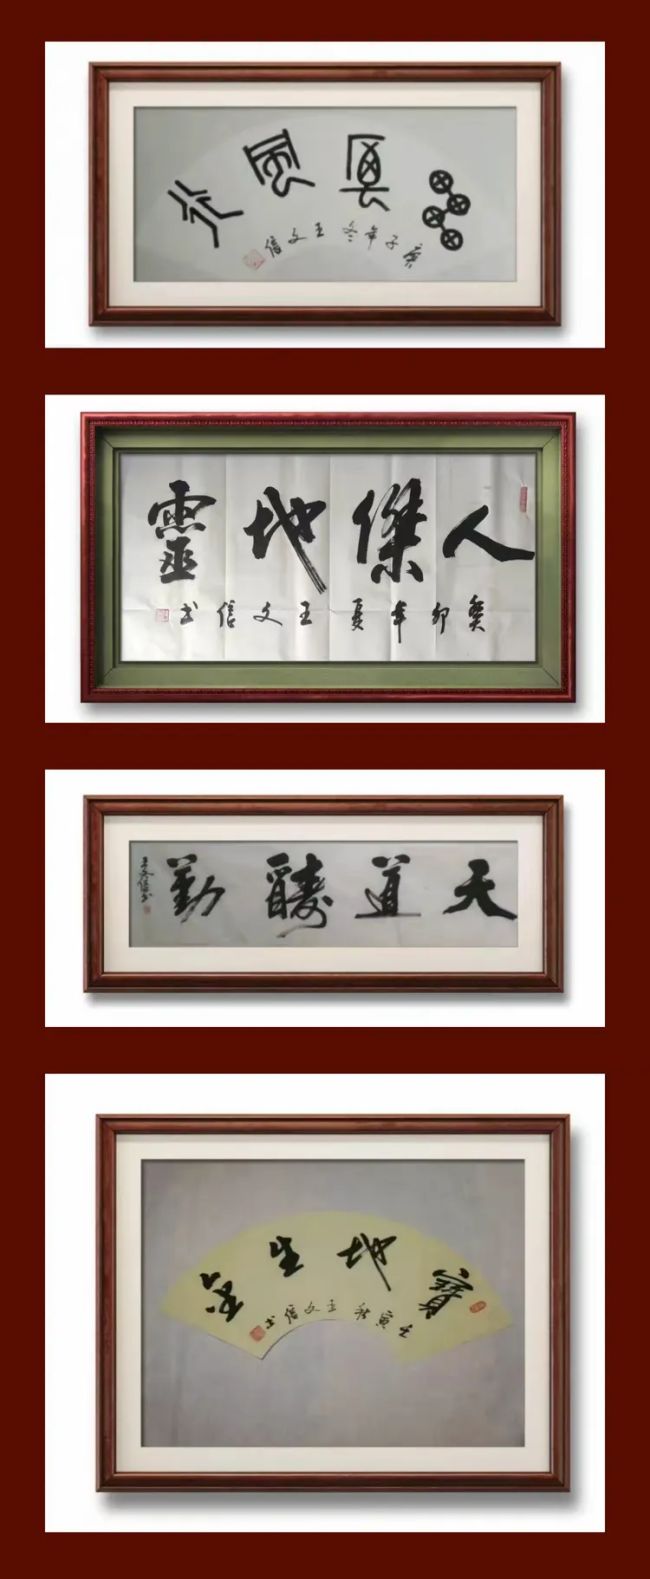 雷厲風行
庚子年冬王文信
人傑地靈
癸卯年夏王文信书
天道醻勤
王文信书
寶地生金
壬寅秋王文信书